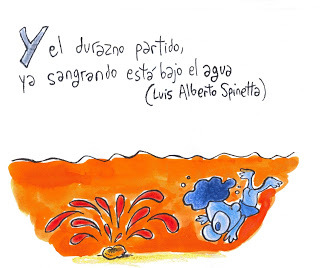 Y el durazno partido,
ya sangrando está bajo el agua
(Luis Alberto Spinetta)